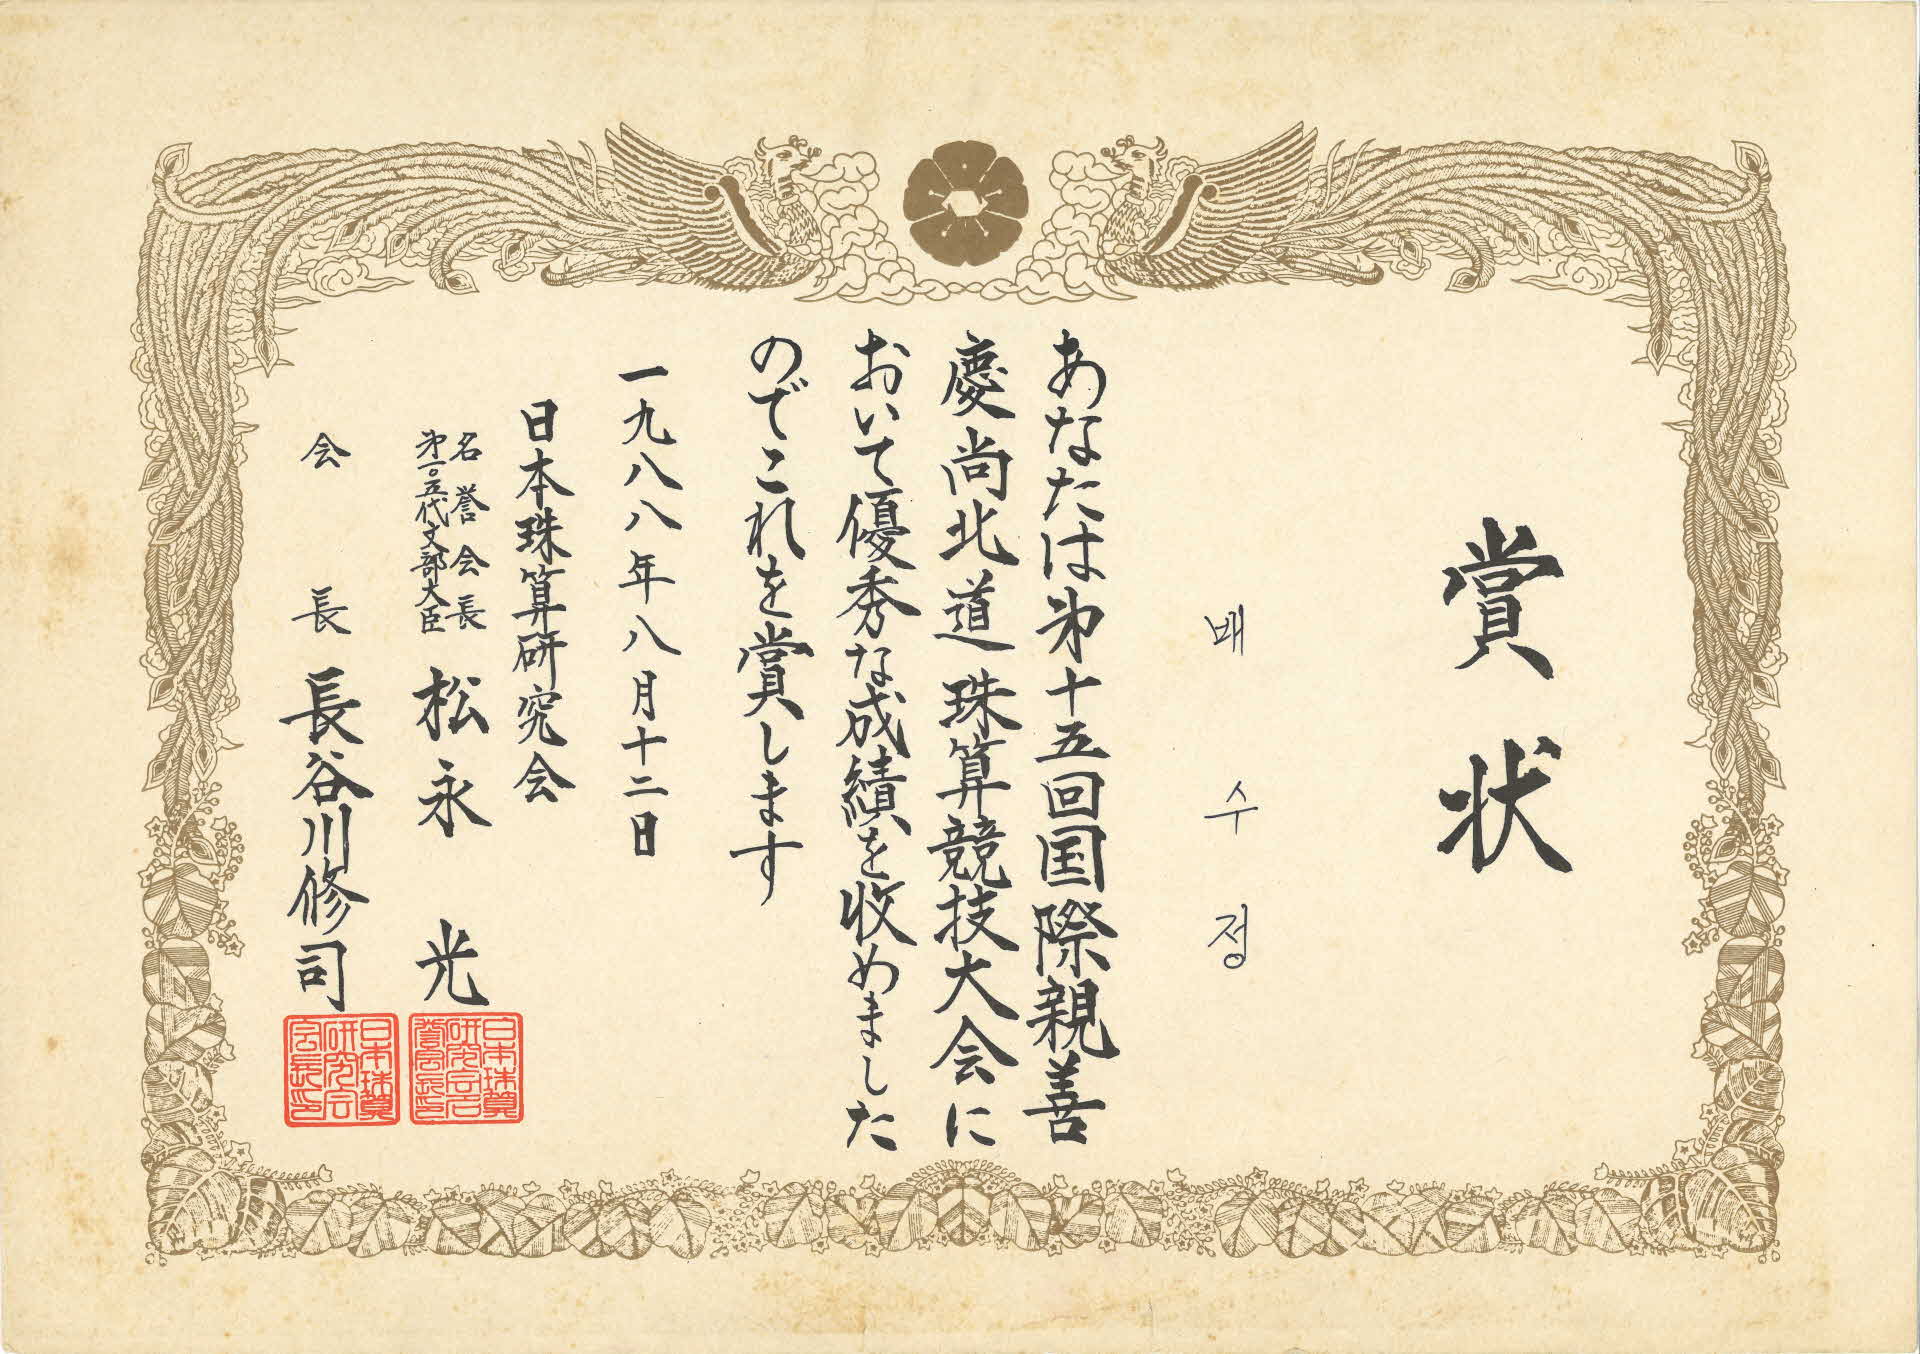 賞状
배수정
あなたは第十五回国際親善
慶尚北道珠算競技大会に
おいて優秀な成績を収めました
のでこれを賞します
一九八八年八月十二日
日本珠算研究会
名誉会長
第一〇五代文部大臣
松永光
会長 長谷川修司
日本珠算研究会名誉会長印
日本珠算研究会会長印